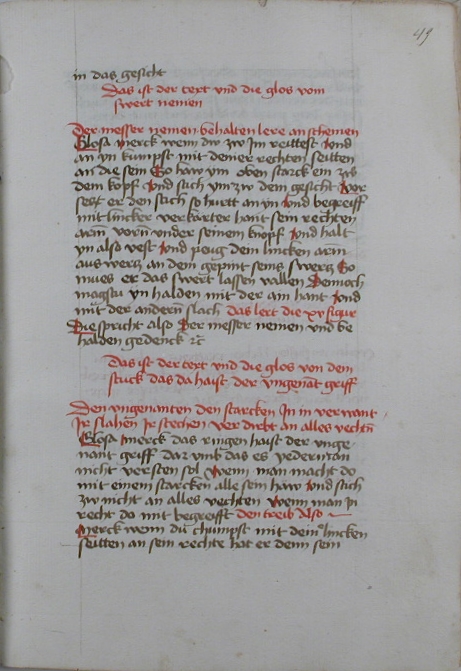 49
in das gesicht
Das ist der text vnd die glos vom
swert nemen
Der messer nemen behalten lere an schemen
Glosa merck wenn dw zw Im reittest vnd
an yn kumpst mit deiner rechten seitten
an die sein So haw ym oben starck ein zw
dem kopf vnd stich ym zw dem gesicht ver
setzt er den stich so hurtt an yn vnd begreiff
mit lincker verkarter hant sein rechten
arm vorn vnder seinem knopf vnd halt
yn also vest vnd peug dein lincken arm
aus wertz an dem gepint seins swertz So
mues er das swert lassen vallen Dennoch
magstu yn halden mit der ain hant vnd
mit der andern slach das lert die xv figur
Die spricht also Der messer nemen vnd be
halden gedenck etc
Das ist der text vnd die glos von dem
stuck das da haist der vngenant griff
Den vngenanten den starcken In in verwant
Ir slahen Ir stechen verdirbt an alles vechtn
Glosa merck das ringen haist der vnge
nant griff dar vmb das es yederman
nicht versten sol wenn man macht do
mit einem starcken alle sein haw vnd stich
zw nicht an alles vechten wenn man in
recht do mit begreifft den treib Also
Merck wenn du chumpst mit deiner lincken
seitten an sein rechte hat er denn sein